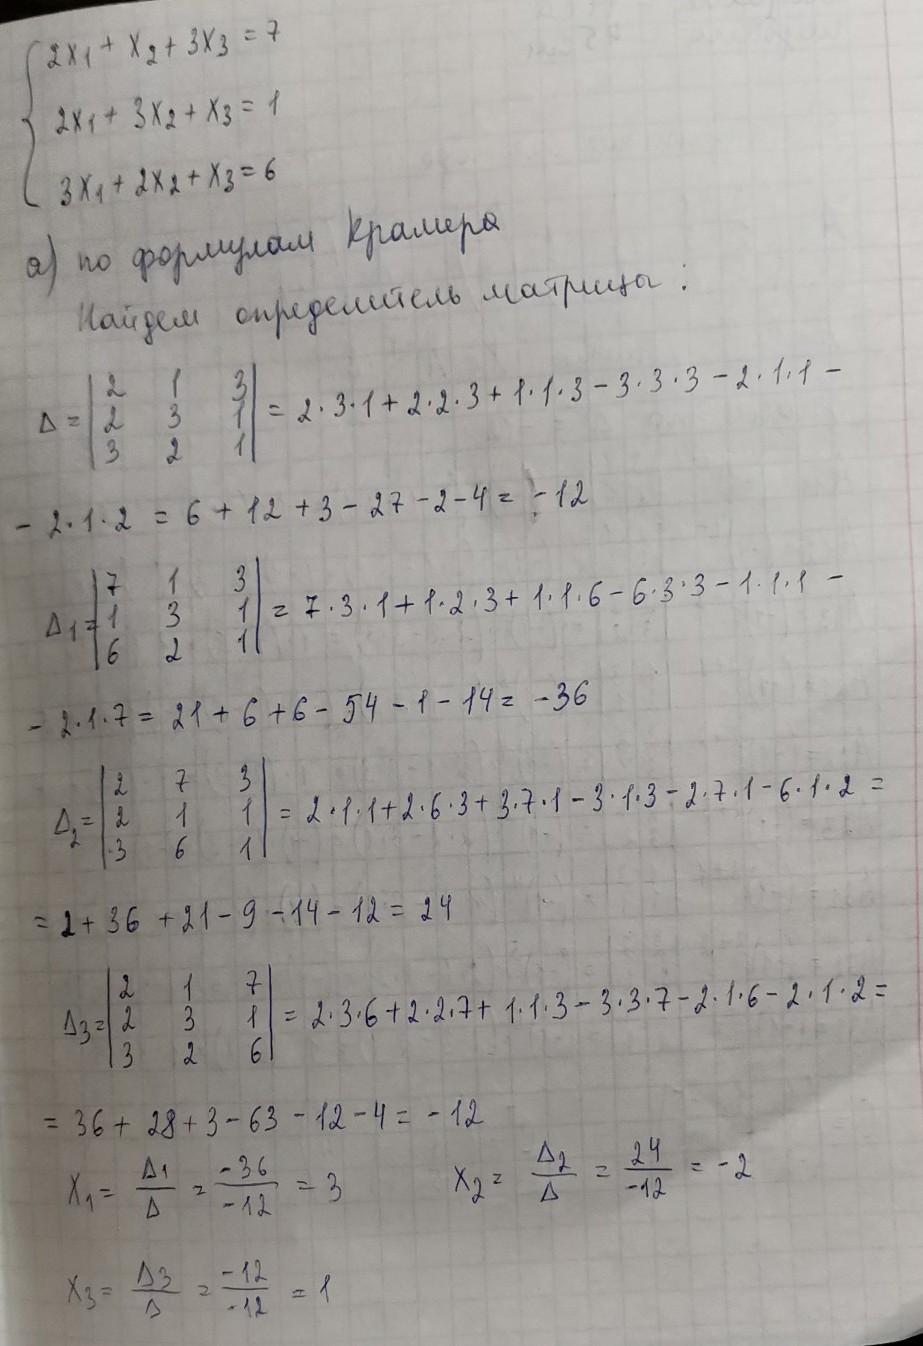 2x₁ + x₂ + 3x₃ = 7
2x₁ + 3x₂ + x₃ = 1
3x₁ + 2x₂ + x₃ = 6
а) по формулам Крамера
Найдем определитель матрицы:
Δ = |2 1 3; 2 3 1; 3 2 1| = 2·3·1 + 2·2·3 + 1·1·3 − 3·3·3 − 2·1·1 −
− 2·1·2 = 6 + 12 + 3 − 27 − 2 − 4 = −12
Δ₁ = |7 1 3; 1 3 1; 6 2 1| = 7·3·1 + 1·2·3 + 1·1·6 − 6·3·3 − 1·1·1 −
− 2·1·7 = 21 + 6 + 6 − 54 − 1 − 14 = −36
Δ₂ = |2 7 3; 2 1 1; 3 6 1| = 2·1·1 + 2·6·3 + 3·7·1 − 3·1·3 − 2·7·1 − 6·1·2 =
= 2 + 36 + 21 − 9 − 14 − 12 = 24
Δ₃ = |2 1 7; 2 3 1; 3 2 6| = 2·3·6 + 2·2·7 + 1·1·3 − 3·3·7 − 2·1·6 − 2·1·2 =
= 36 + 28 + 3 − 63 − 12 − 4 = −12
x₁ = Δ₁/Δ = −36/−12 = 3 x₂ = Δ₂/Δ = 24/−12 = −2
x₃ = Δ₃/Δ = −12/−12 = 1